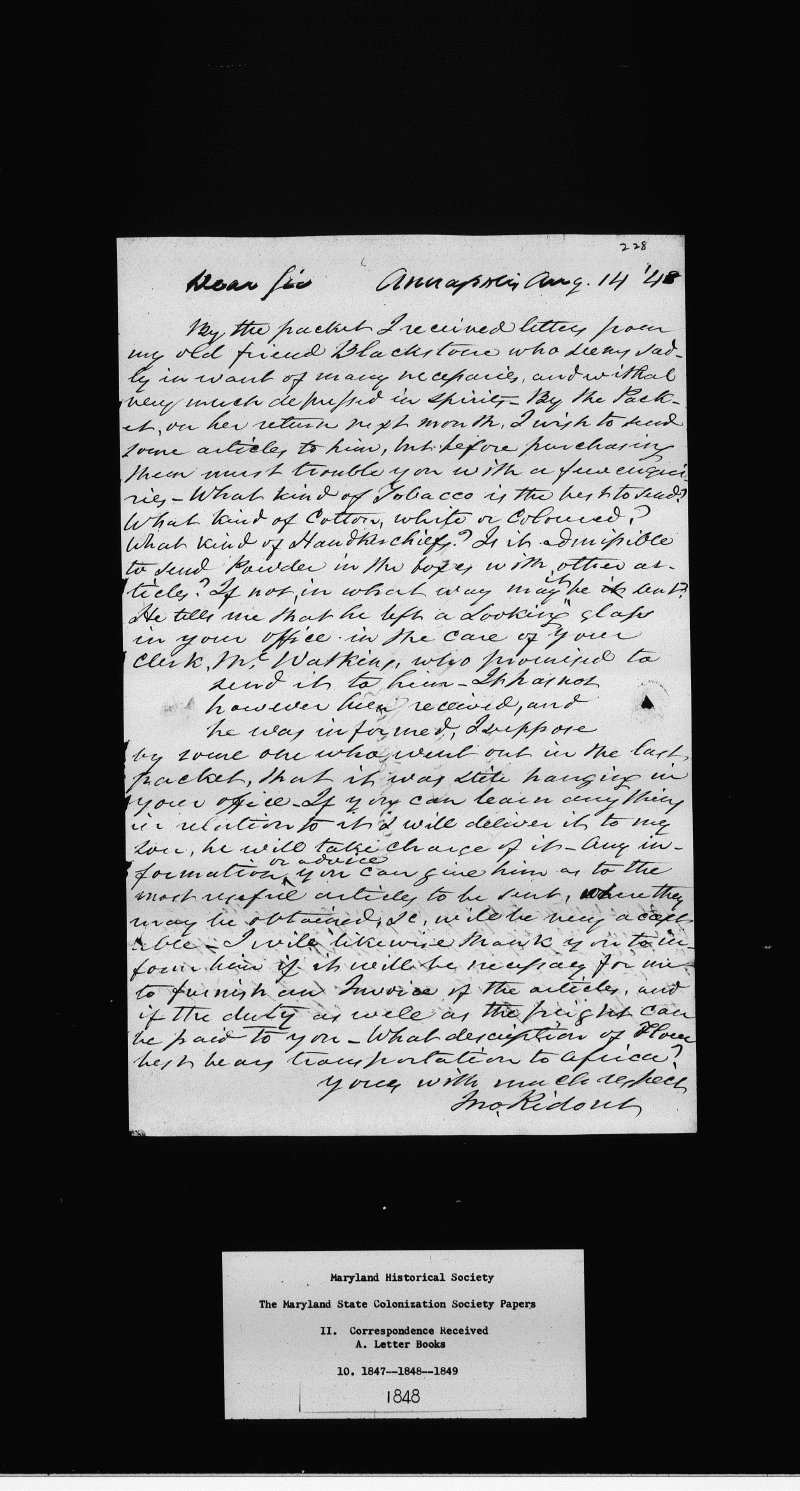 228
Dear Sir Annapolis Aug. 14 '48
By the packet I received letters from
my old friend Blackstone who seems sad-
ly in want of many necessaries, and withal
very much depressed in spirits - By the Pack-
et, on her return next month, I wish to send
some articles to him, but before purchasing
them must trouble you with a few enqui-
ries - What kind of Tobacco is the best to send?
What kind of Cotton, white or Coloured?
What kind of Handkerchiefs? Is it admissible
to send Powder in the boxes with other ar-
ticles? If not, in what way may it be sent?
He tells me that he left a Looking glass
in your office in the care of your
Clerk, Mr. Watkins, who promised to
send it to him - It has not
however been received, and
he was informed, I suppose
by some one who went out in the last
packet, that it was still hanging in
your office - If you can learn any thing
in relation to it & will deliver it to my
son, he will take charge of it - Any in-
formation or advice you can give him as to the
most useful articles to be sent, where they
may be obtained, &c, will be very accept
able - I will likewise thank you to in-
form him if it will be necessary for me
to furnish an Invoice of the articles, and
if the duty as well as the freight can
be paid to you - What description of Flour
best bears transportation to Africa?
Yours with much respect
Jno. Ridout
Maryland Historical Society
The Maryland State Colonization Society Papers
II. Correspondence Received
A. Letter Books
10. 1847--1848--1849
1848